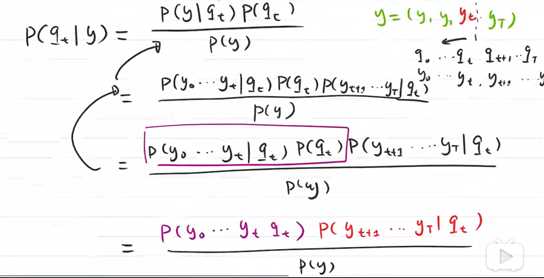 P(q_t|y) = P(y|q_t) P(q_t) / P(y)
y = (y, y, y_t ... y_T)
q_0 ... q_t q_{t+1} ... q_T
y_0 ... y_t, y_{t+1}, ... y_T
= P(y_0 ... y_t|q_t) P(q_t) P(y_{t+1} ... y_T|q_t) / P(y)
= P(y_0 ... y_t|q_t) P(q_t) P(y_{t+1} ... y_T|q_t) / P(y)
= P(y_0 ... y_t q_t) P(y_{t+1} ... y_T|q_t) / P(y)